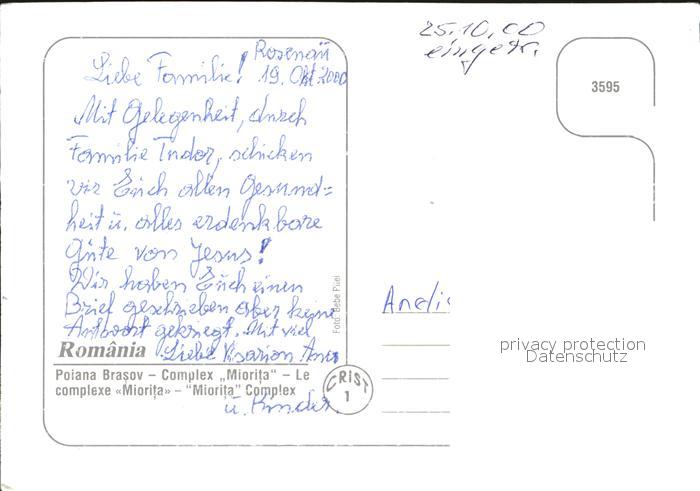 25.10.00
eingetr.
3595
Rosenau
19. Okt. 2000
Liebe Familie!
Mit Gelegenheit, durch
Familie Tudor, schicken
wir Euch allen Gesund=
heit u. alles erdenkbare
Güte von Jesus!
Wir haben Euch einen
Brief geschrieben aber keine
Antwort gekriegt. Mit viel
Liebe Visarion
u. Kinder.
România
Poiana Braşov – Complex „Mioriţa" – Le
complexe «Mioriţa» – "Mioriţa" Complex
Foto: Bebe Pûei
CRIST
1
privacy protection
Datenschutz